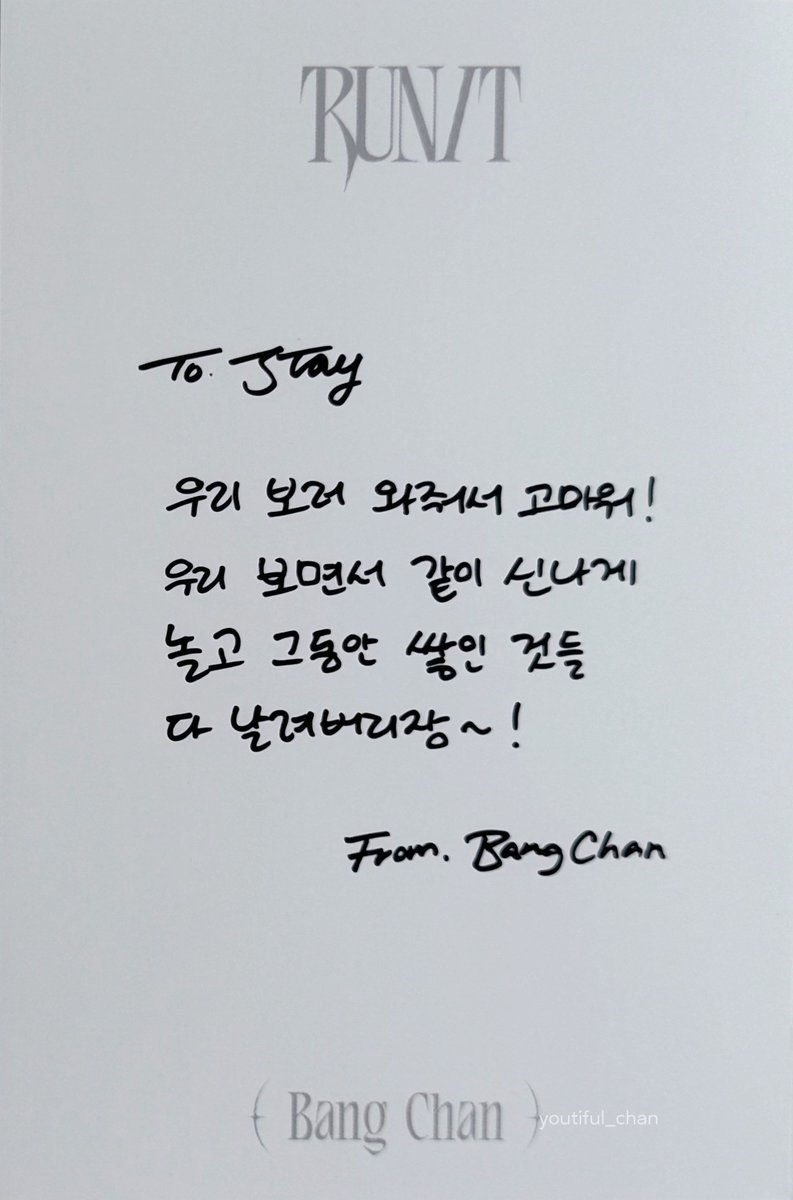 RUN/T
To. Stay
우리 보러 와줘서 고마워!
우리 보면서 같이 신나게
놀고 그동안 쌓인 것들
다 날려버리장~!
From. Bang Chan
( Bang Chan )
youtiful_chan